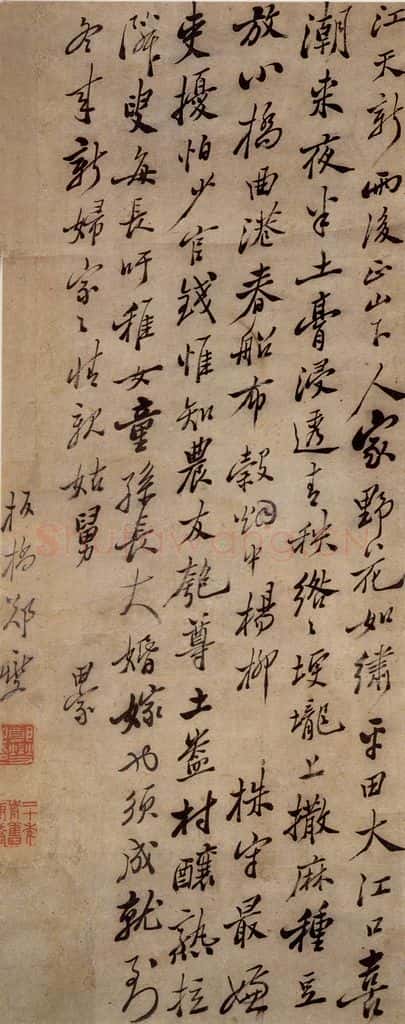 江天新雨後正山下人家野花如繡平田大江口喜
潮来夜半土膏浸透青秧綹〻埂壠上撒麻種豆
放小橋曲港春船布穀烟中楊柳 株守最嫌
吏擾怕少官錢惟知農友匏尊土盎村釀熟拉
隣叟每長吁稚女童孫長大婚嫁也須成就到
冬来新婦家〻情親姑舅 田家
板橋鄭燮